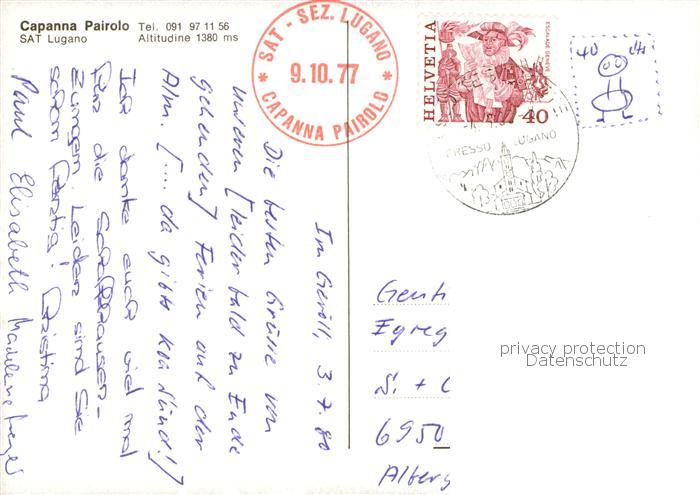 Capanna Pairolo Tel. 091 97 11 56
SAT Lugano Altitudine 1380 ms
* SAT - SEZ. LUGANO *
9.10.77
CAPANNA PAIROLO
HELVETIA
ESCALADE GENÈVE
40
40 cts
PRESSO LUGANO
Im Geröll, 3.7.80
Die besten Grüsse von
unseren [leider bald zu Ende
gehenden] Ferien auf der
Alm. [... da gibts kei Sünd!]
Ich danke euch vil mal
für die Schaffhauser-
Zungen. Leider sind Sie
schon fertig! Cristina
Paul Elisabeth Madeleine
Genti
Egreg
S. + C
6950
Alberg
privacy protection
Datenschutz